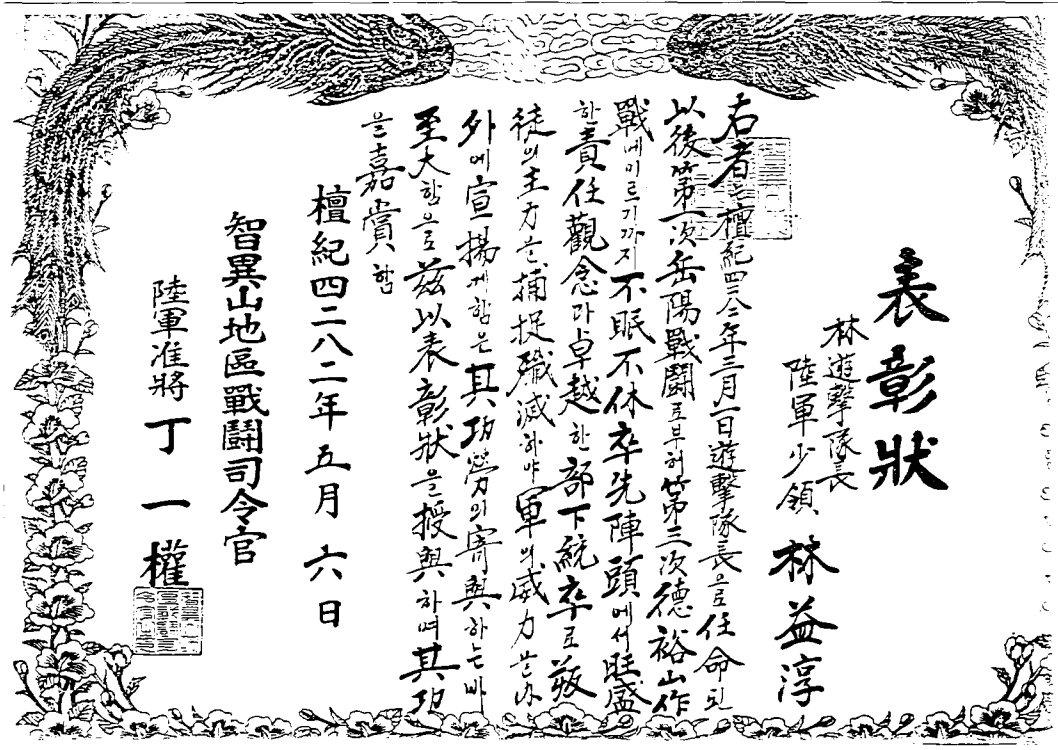 表彰狀
林遊擊隊長
陸軍少領 林益淳
右者는檀紀四二八二年三月一日遊擊隊長으로任命된
以後第一次岳陽戰鬪로부허第三次德裕山作
戰에이르기까지不眠不休卒先陣頭에서旺盛
한責任觀念과卓越한部下統卒로叛
徒의主力을捕捉殲滅하야軍의威力을內
外에宣揚케함은其功勞의寄與하는바
至大함으로玆以表彰狀을授與하며其功
을嘉賞함
檀紀四二八二年五月六日
智異山地區戰鬪司令官
陸軍准將 丁一權